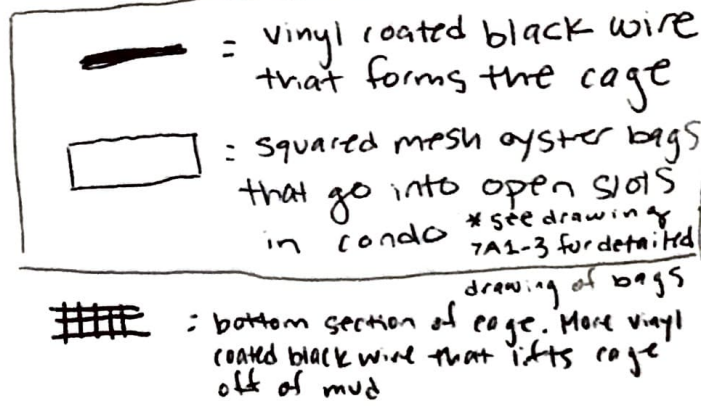 = vinyl coated black wire
that forms the cage
= squared mesh oyster bags
that go into open slots
in condo *see drawing
7A1-3 for detailed
drawing of bags
: bottom section of cage. More vinyl
coated black wire that lifts cage
off of mud